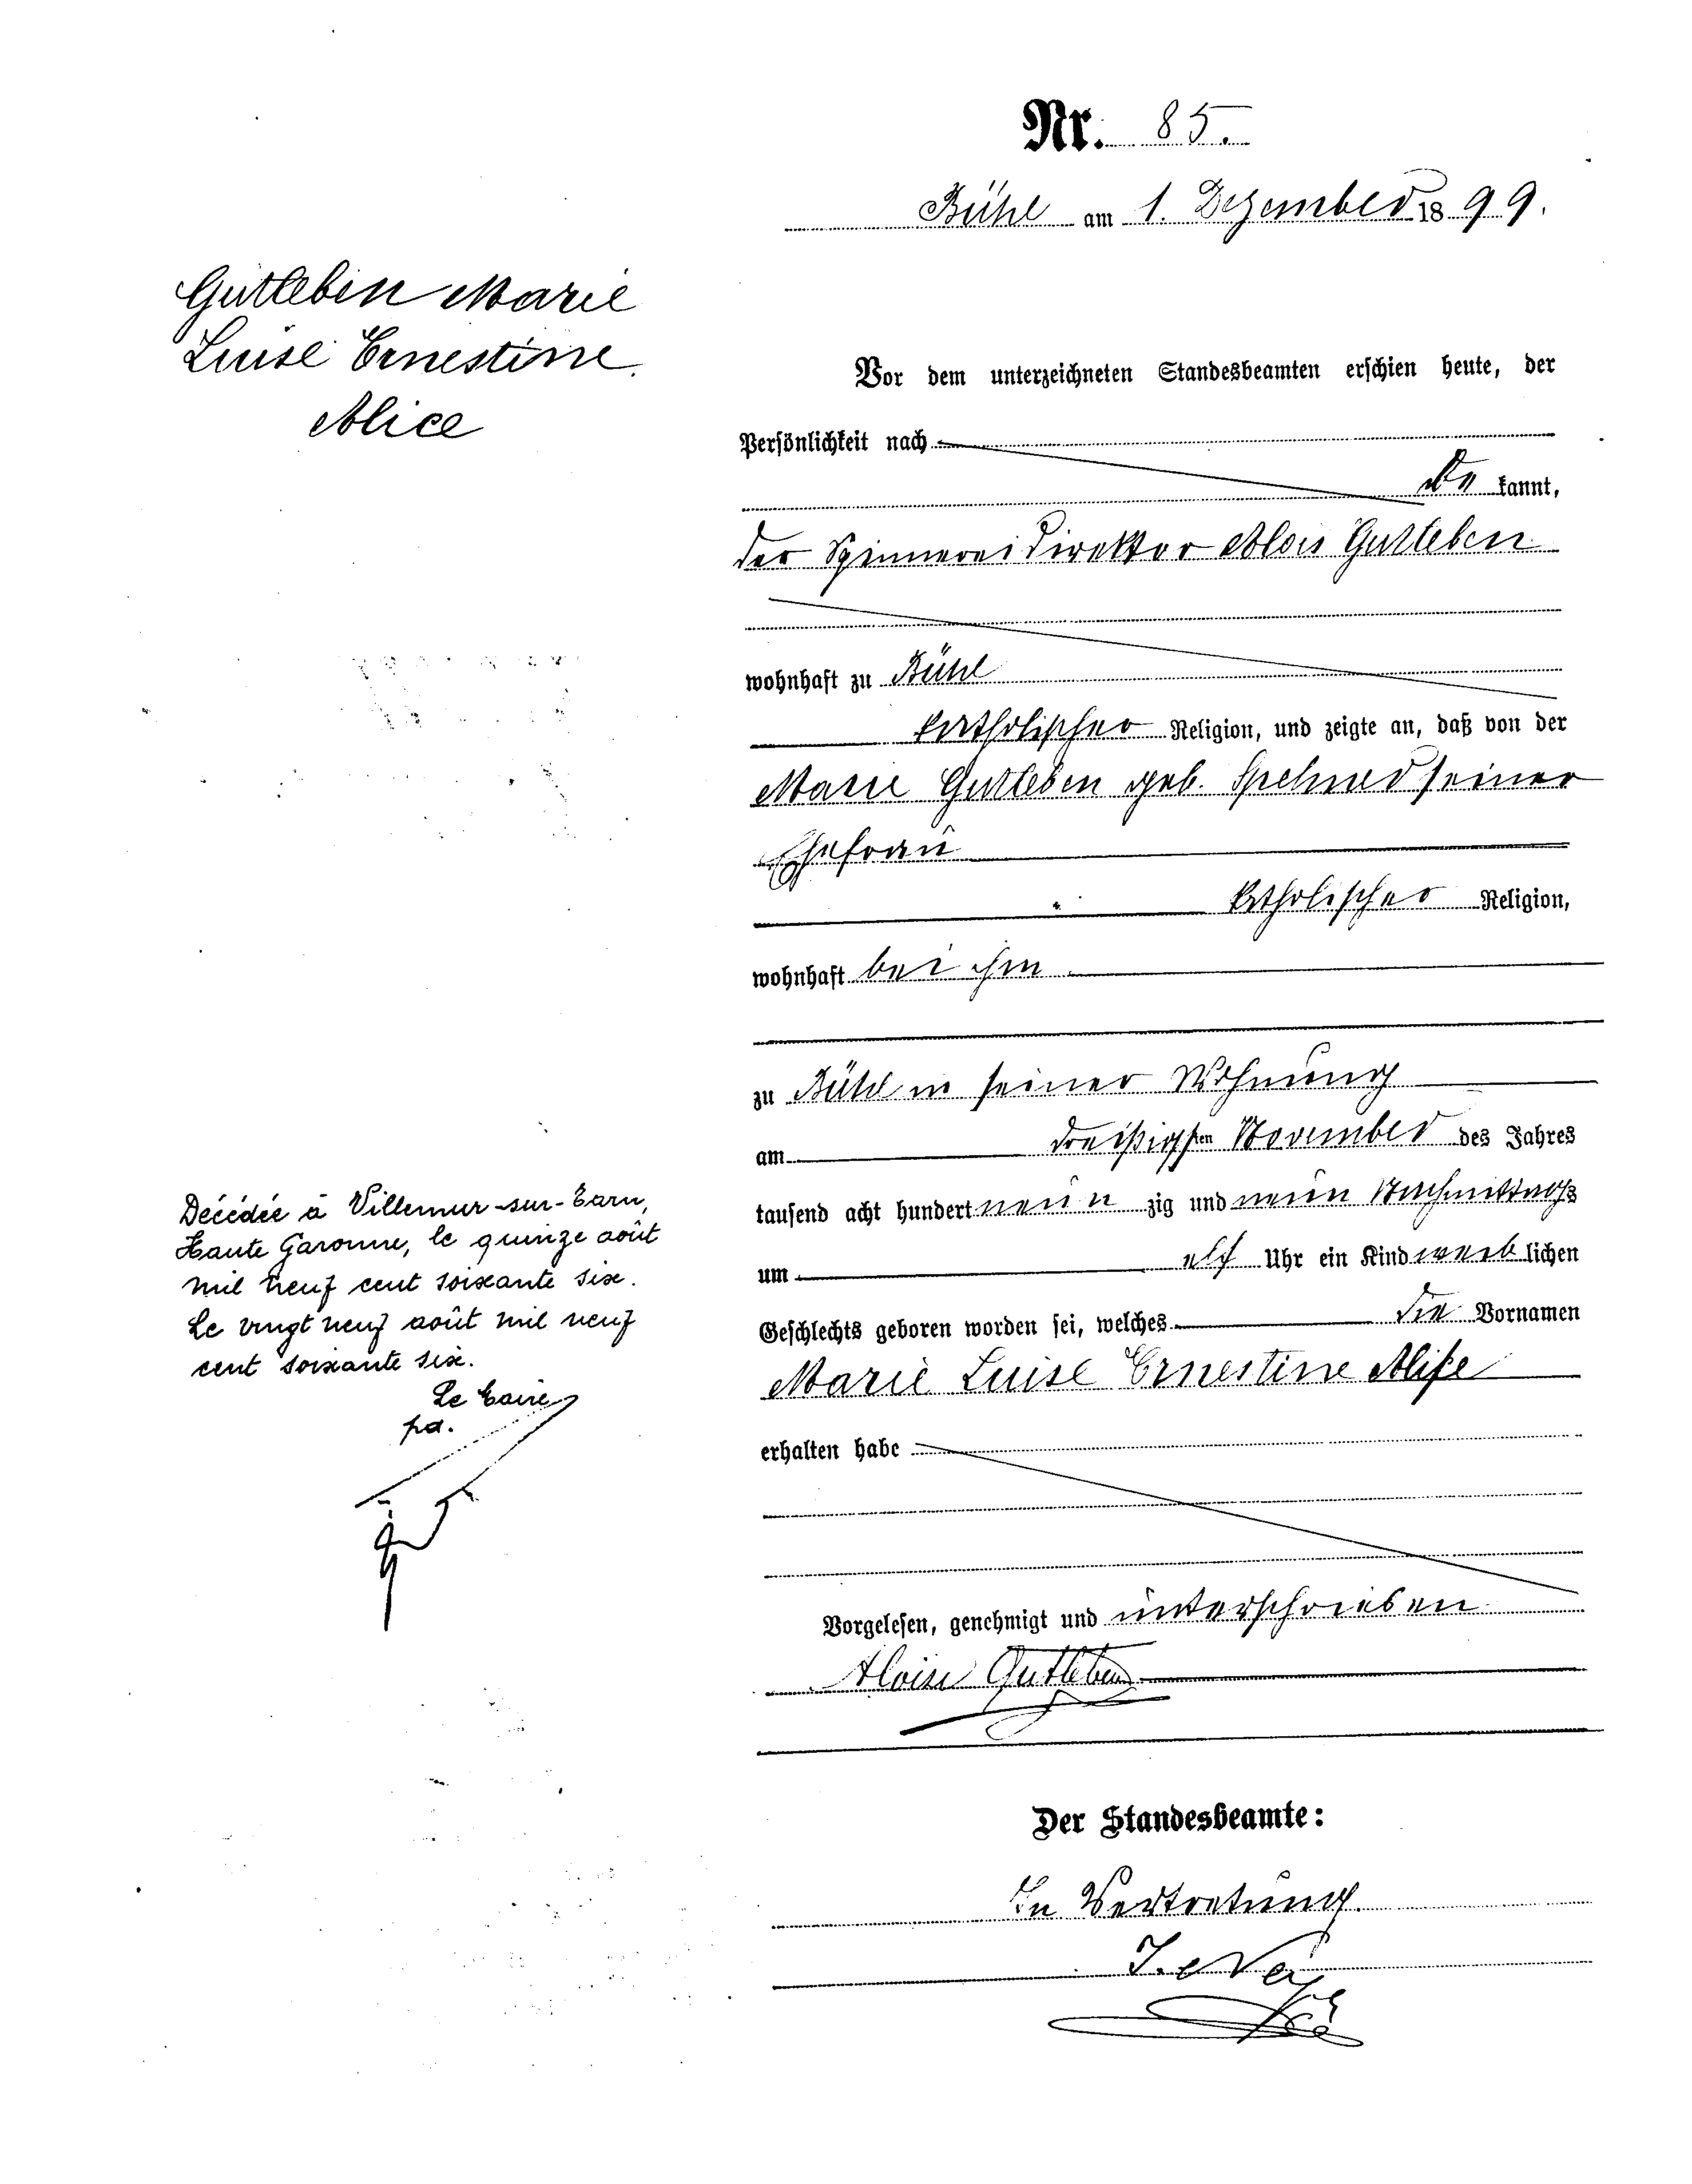 Nr. 85.
Bühl am 1. Dezember 1899.
Gutleben Marie
Luise Ernestine
Alice
Vor dem unterzeichneten Standesbeamten erschien heute, der
Persönlichkeit nach
be kannt,
der Spinnereidirektor Alois Gutleben
wohnhaft zu Bühl
katholischer Religion, und zeigte an, daß von der
Marie Gutleben geb. seiner
Ehefrau
katholischer Religion,
wohnhaft bei ihm
zu Bühl in seiner Wohnung
am dreißigsten November des Jahres
tausend acht hundert neun zig und neun Nachmittags
um elf Uhr ein Kind weib lichen
Geschlechts geboren worden sei, welches die Vornamen
Marie Luise Ernestine Alise
erhalten habe
Vorgelesen, genehmigt und unterschrieben
Aloise Gutleben
Der Standesbeamte:
In Vertretung.
Décédée à Villemur-sur-Tarn,
Haute Garonne, le quinze août
mil neuf cent soixante six.
Le vingt neuf août mil neuf
cent soixante six.
Le Maire
pd.